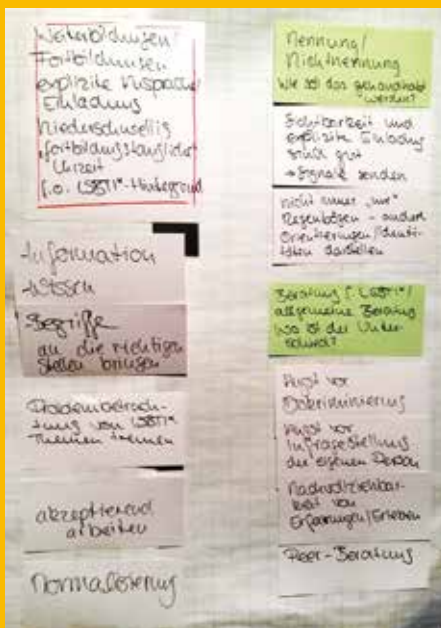 Weiterbildungen/
Fortbildungen
explizite Ansprache/
Einladung
Niederschwellig
"fortbildungstaugliche"
Uhrzeit
f. o. LSBTI*-Hintergrund
-Information
-Wissen
-Begriffe
an die richtigen
Stellen bringen
Problembetrach-
tung von LSBTI*
Themen trennen
akzeptierend
arbeiten
Normalisierung
Nennung/
Nichtnennung
Wie soll das gehandhabt
werden?
Sichtbarkeit und
explizite Einladung
sind gut
→ Signale senden
nicht immer "nur"
Regenbögen - andere
Orientierungen/Identi-
täten darstellen
Beratung f. LSBTI*/
allgemeine Beratung
Wo ist der Unter-
schied?
Angst vor
Diskriminierung
Angst vor
Infragestellung
der eigenen Person
Nachvollziehbar-
keit von
Erfahrungen/Erleben
Peer-Beratung